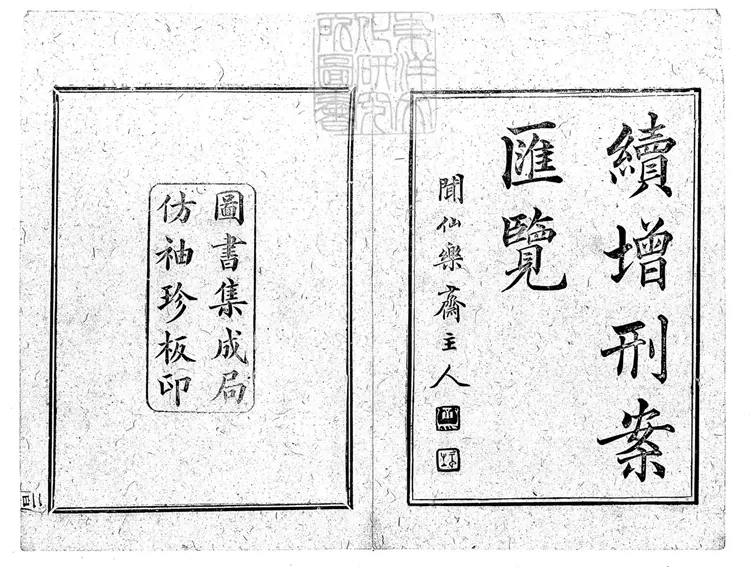 續增刑案
匯覽
聞仙樂齋主人
圖書集成局
仿袖珍板印
東洋文
化研究
所圖書